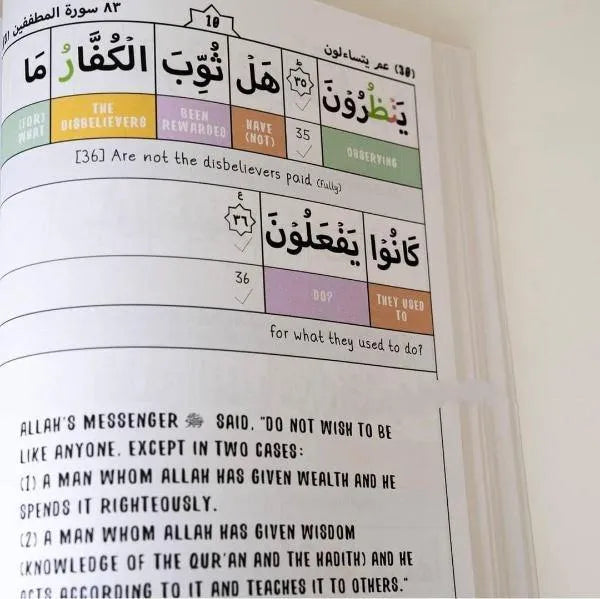 ٨٣ سورة المطففين
10
(30) عم يتساءلون
يَنْظُرُوْنَ ٣٥ هَلْ ثُوِّبَ الْكُفَّارُ مَا
OBSERVING 35 HAVE (NOT) BEEN REWARDED THE DISBELIEVERS (FOR) WHAT
[36] Are not the disbelievers paid (fully)
كَانُوْا يَفْعَلُوْنَ ٣٦ ع
THEY USED TO DO? 36
for what they used to do?
ALLAH'S MESSENGER ﷺ SAID, "DO NOT WISH TO BE
LIKE ANYONE, EXCEPT IN TWO CASES:
(1) A MAN WHOM ALLAH HAS GIVEN WEALTH AND HE
SPENDS IT RIGHTEOUSLY.
(2) A MAN WHOM ALLAH HAS GIVEN WISDOM
(KNOWLEDGE OF THE QUR'AN AND THE HADITH) AND HE
ACTS ACCORDING TO IT AND TEACHES IT TO OTHERS."